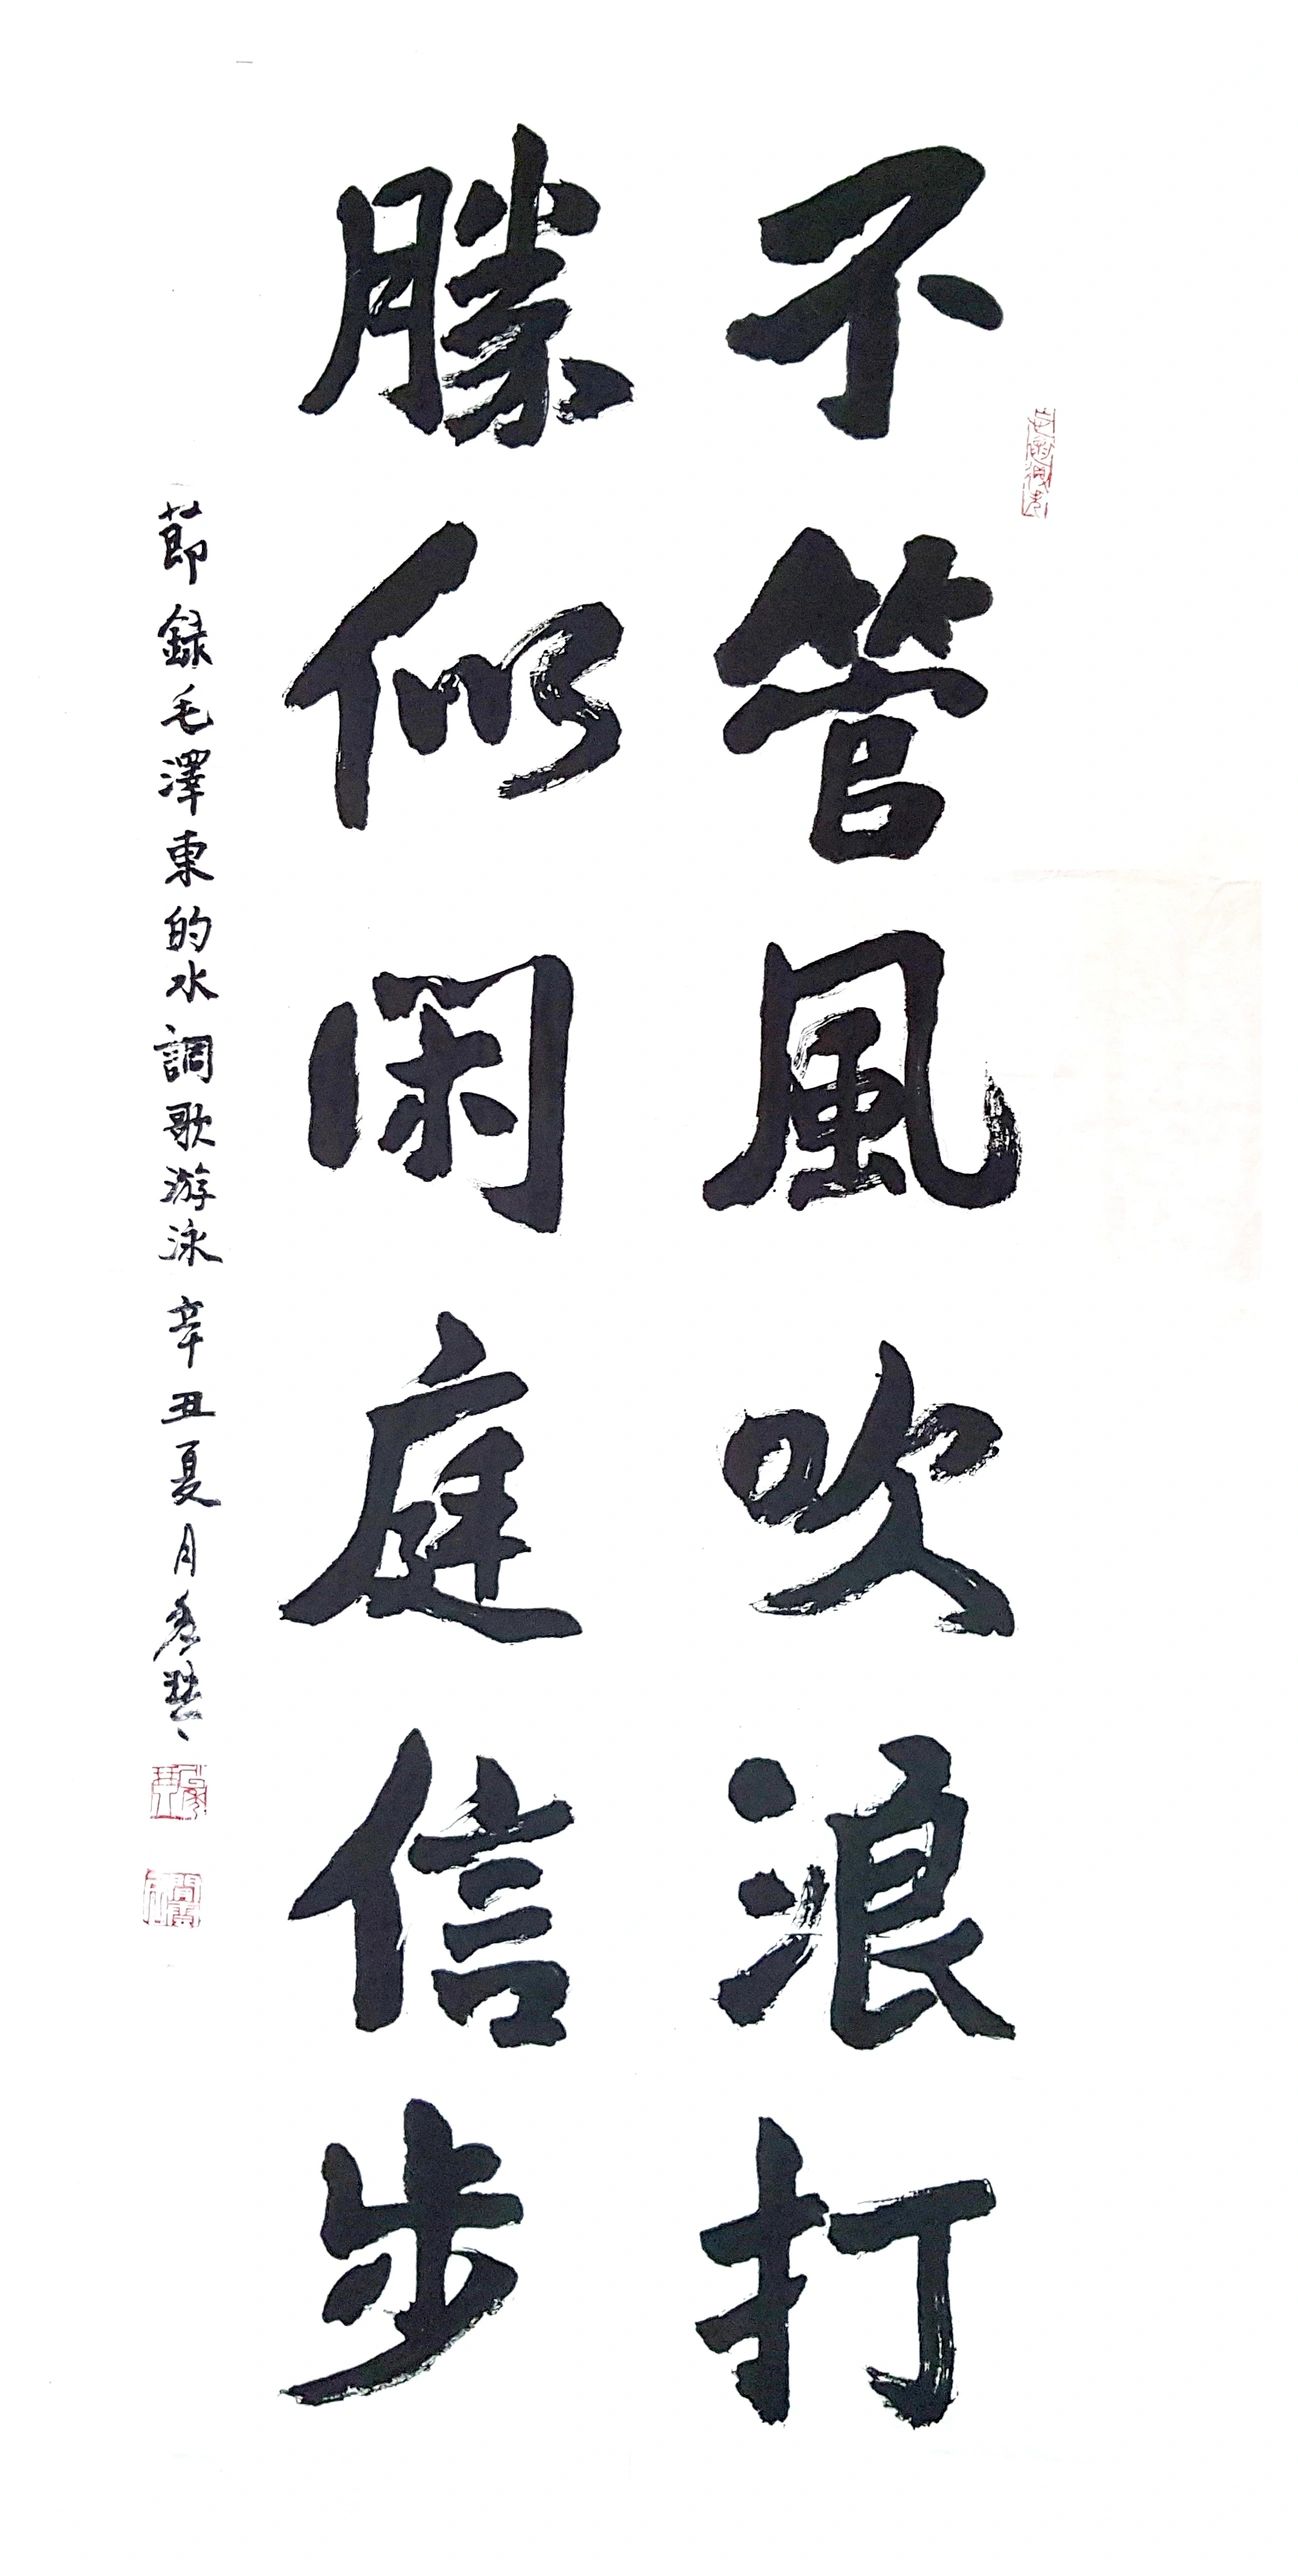 不管風吹浪打
勝似閑庭信步
節録毛澤東的水調歌游泳辛丑夏月